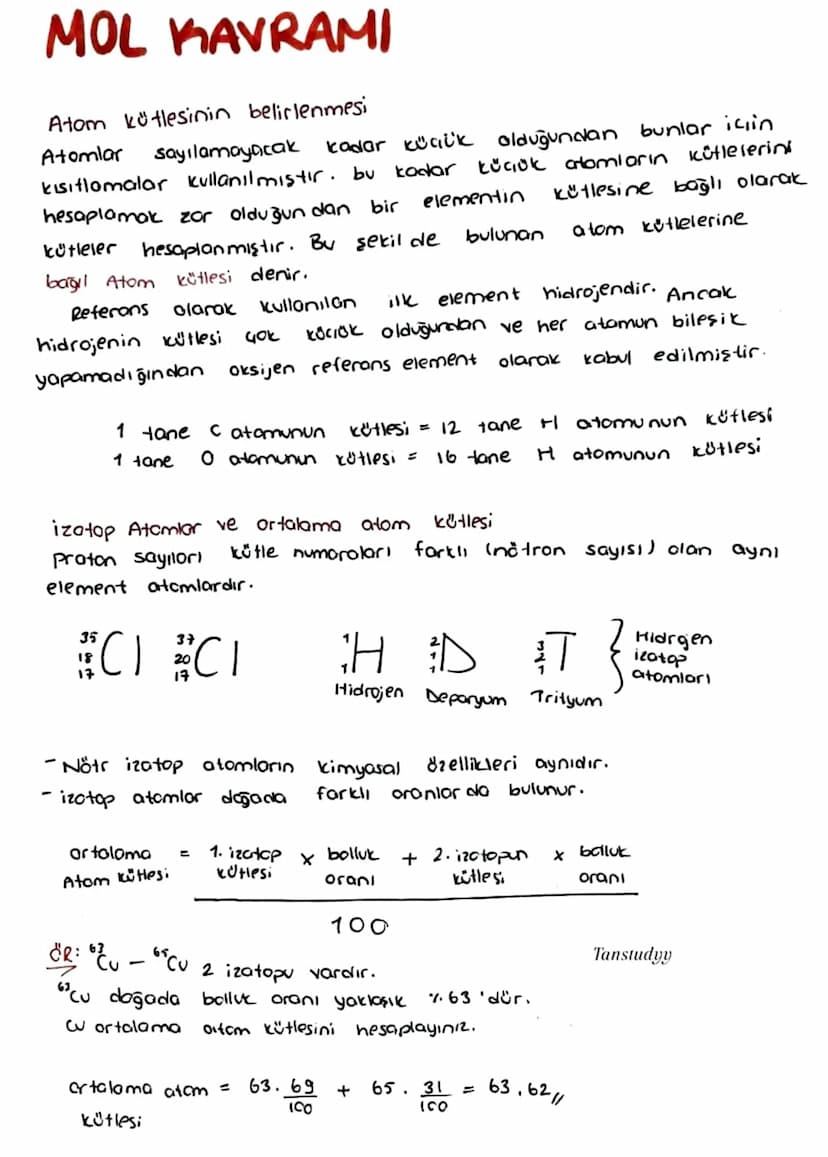 MOL KAVRAMI
Atom kütlesinin belirlenmesi
Atomlar sayılamayacak kadar küçük olduğundan bunlar için
kısıtlamalar kullanılmıştır. bu kadar küçük atomların kütlelerini
hesaplamak zor olduğundan bir elementin kütlesine bağlı olarak
kütleler hesaplanmıştır. Bu şekilde bulunan atom kütlelerine
bağıl Atom kütlesi denir.
Referans olarak kullanılan ilk element hidrojendir. Ancak
hidrojenin kütlesi çok küçük olduğundan ve her atomun bileşik
yapamadığından oksijen referans element olarak kabul edilmiştir.
1 tane C atomunun kütlesi = 12 tane H atomunun kütlesi
1 tane O atomunun kütlesi = 16 tane H atomunun kütlesi
izotop Atomlar ve ortalama atom kütlesi
Proton sayıları kütle numaraları farklı (nötron sayısı) olan aynı
element atomlardır.
35 18 17 Cl 37 20 17 Cl 1 1 H 2 1 1 D 3 2 1 T } Hidrgen
izotop
atomları
Hidrojen Deporyum Trityum
- Nötr izotop atomların kimyasal özellikleri aynıdır.
- izotop atomlar doğada farklı oranlarda bulunur.
ortalama = 1. izotop x bolluk + 2. izotopun x bolluk
Atom kütlesi kütlesi oranı kütlesi oranı
100
ÖR: ⁶³Cu - ⁶⁵Cu 2 izotopu vardır.
Tanstudyy
⁶³Cu doğada bolluk oranı yaklaşık %63'dür.
Cu ortalama atom kütlesini hesaplayınız.
ortalama atom = 63 . 69/100 + 65 . 31/100 = 63,62//
kütlesi